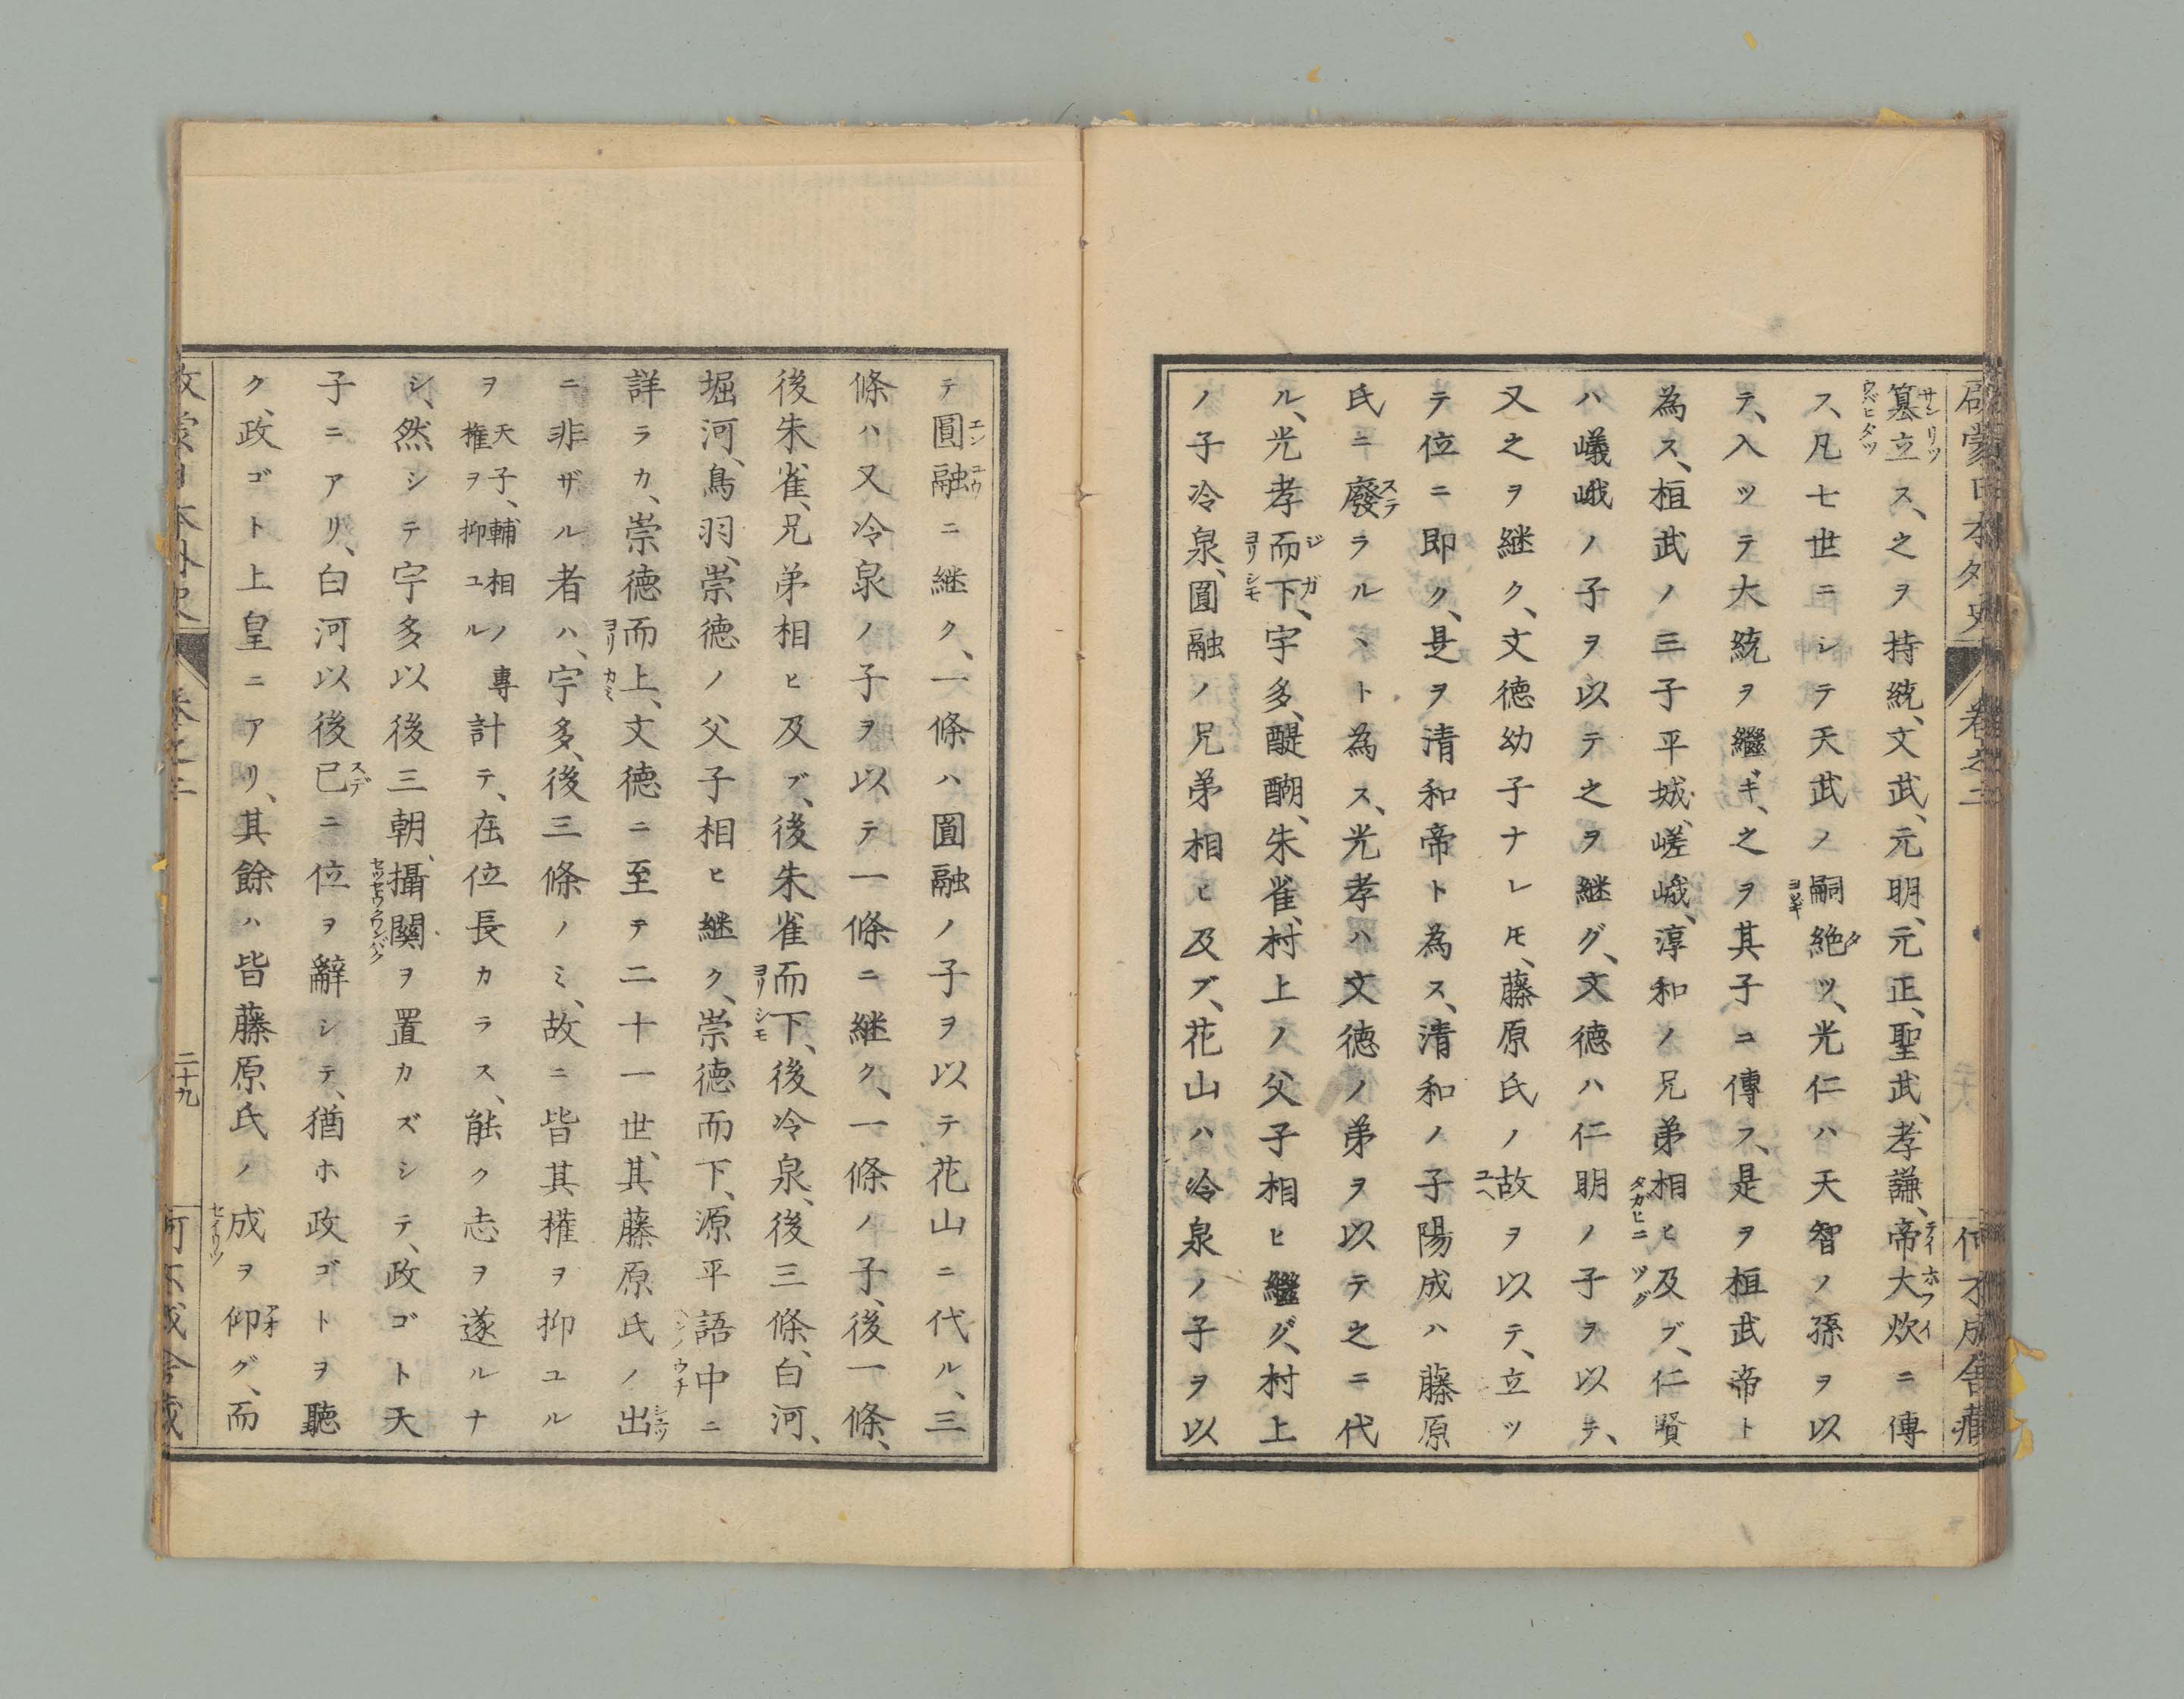 啟蒙日本外史 卷之二 何不成舍藏
簒立ス、之ヲ持統、文武、元明、元正、聖武、孝謙、帝大炊ニ傳
ス、凡七世ニシテ天武ノ嗣絶ツ、光仁ハ天智ノ孫ヲ以
テ、入ツテ大統ヲ繼ギ、之ヲ其子ニ傳フ、是ヲ桓武帝ト
為ス、桓武ノ三子平城、嵯峨、淳和ノ兄弟相ヒ及ブ、仁賢
ハ嶬峨ノ子ヲ以テ之ヲ継グ、文徳ハ仁明ノ子ヲ以テ、
又之ヲ継ク、文徳幼子ナレ𪜈、藤原氏ノ故ヲ以テ、立ツ
テ位ニ即ク、是ヲ清和帝ト為ス、清和ノ子陽成ハ藤原
氏ニ廢ラルヽト為ス、光孝ハ文徳ノ弟ヲ以テ之ニ代
ル、光孝而下、宇多、醍醐、朱雀、村上ノ父子相ヒ繼グ、村上
ノ子冷泉、圓融ノ兄弟相ヒ及ブ、花山ハ冷泉ノ子ヲ以
テ圓融ニ継ク、一條ハ圓融ノ子ヲ以テ花山ニ代ル、三
條ハ又冷泉ノ子ヲ以テ一條ニ継ク、一條ノ子、後一條、
後朱雀、兄弟相ヒ及ブ、後朱雀而下、後冷泉、後三條、白河、
堀河、鳥羽、崇徳ノ父子相ヒ継ク、崇徳而下、源平語中ニ
詳ラカ、崇徳而上、文徳ニ至テ二十一世、其藤原氏ノ出
ニ非ザル者ハ、宇多、後三條ノミ、故ニ皆其権ヲ抑ユル
ヲ天子、輔相ノ専権ヲ抑ユル計テ、在位長カラス、能ク志ヲ遂ルナ
シ、然シテ宇多以後三朝、攝關ヲ置カズシテ、政ゴト天
子ニアリ、白河以後已ニ位ヲ辭シテ、猶ホ政ゴトヲ聽
ク、政ゴト上皇ニアリ、其餘ハ皆藤原氏ノ成ヲ仰グ、而
啟蒙日本外史 卷之二 二十九 何不成舍藏